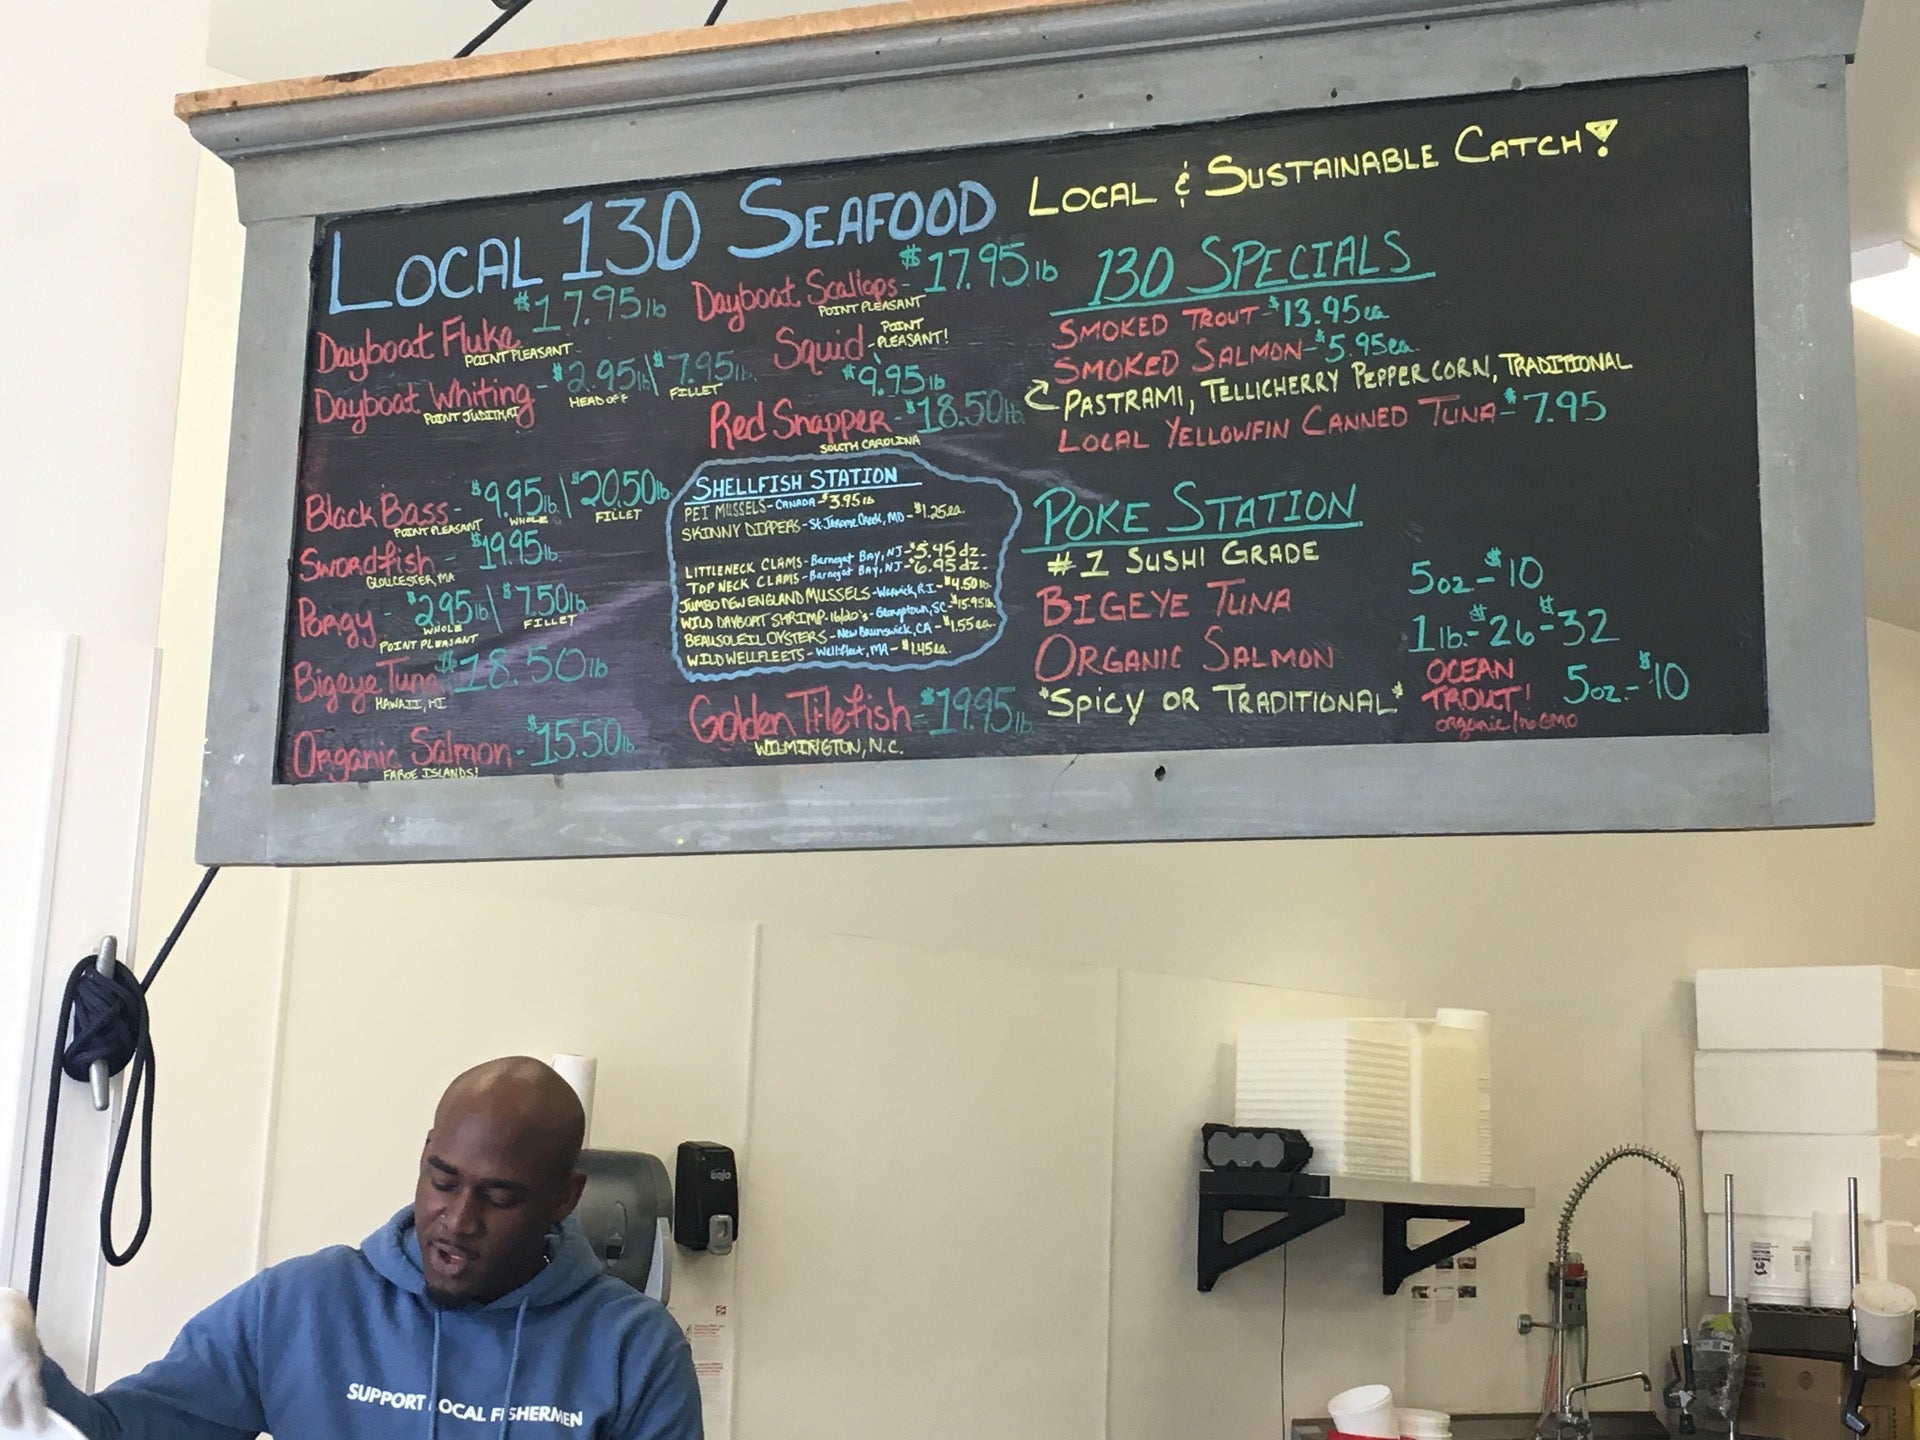 LOCAL 130 SEAFOOD
LOCAL & SUSTAINABLE CATCH!
Dayboat Fluke $17.95 lb
POINT PLEASANT
Dayboat Whiting - $2.95 lb \ $7.95 lb.
POINT JUDITH, RI HEAD OFF FILLET
Black Bass - $9.95 lb. \ $20.50 lb.
POINT PLEASANT WHOLE FILLET
Swordfish - $19.95 lb.
GLOUCESTER, MA
Porgy - $2.95 lb \ $7.50 lb.
WHOLE FILLET
POINT PLEASANT
Bigeye Tuna $18.50 lb
HAWAII, HI
Organic Salmon - $15.50 lb.
FAROE ISLANDS!
Dayboat Scallops - $17.95 lb
POINT PLEASANT
Squid - POINT PLEASANT!
$9.95 lb
Red Snapper - $18.50 lb.
SOUTH CAROLINA
SHELLFISH STATION
PEI MUSSELS - CANADA - $3.95 lb
SKINNY DIPPERS - St. Jerome Creek, MD - $1.25 ea.
LITTLENECK CLAMS - Barnegat Bay, NJ - $5.45 dz.
TOP NECK CLAMS - Barnegat Bay, NJ - $6.95 dz.
JUMBO NEW ENGLAND MUSSELS - Warwick, R.I - $4.50 lb.
WILD DAYBOAT SHRIMP - 16/20's - Georgetown, SC - $15.95 lb.
BEAUSOLEIL OYSTERS - New Brunswick, CA - $1.55 ea.
WILD WELLFLEETS - Wellfleet, MA - $1.45 ea.
Golden Tilefish - $19.95 lb.
WILMINGTON, N.C.
130 SPECIALS
SMOKED TROUT - $13.95 ea
SMOKED SALMON - $5.95 ea.
PASTRAMI, TELLICHERRY PEPPERCORN, TRADITIONAL
LOCAL YELLOWFIN CANNED TUNA - $7.95
POKE STATION
#1 SUSHI GRADE
BIGEYE TUNA
ORGANIC SALMON
*SPICY OR TRADITIONAL*
5oz - $10
1 lb. - $26 - $32
OCEAN TROUT! 5oz. - $10
organic/no GMO
SUPPORT LOCAL FISHERMEN
gojo